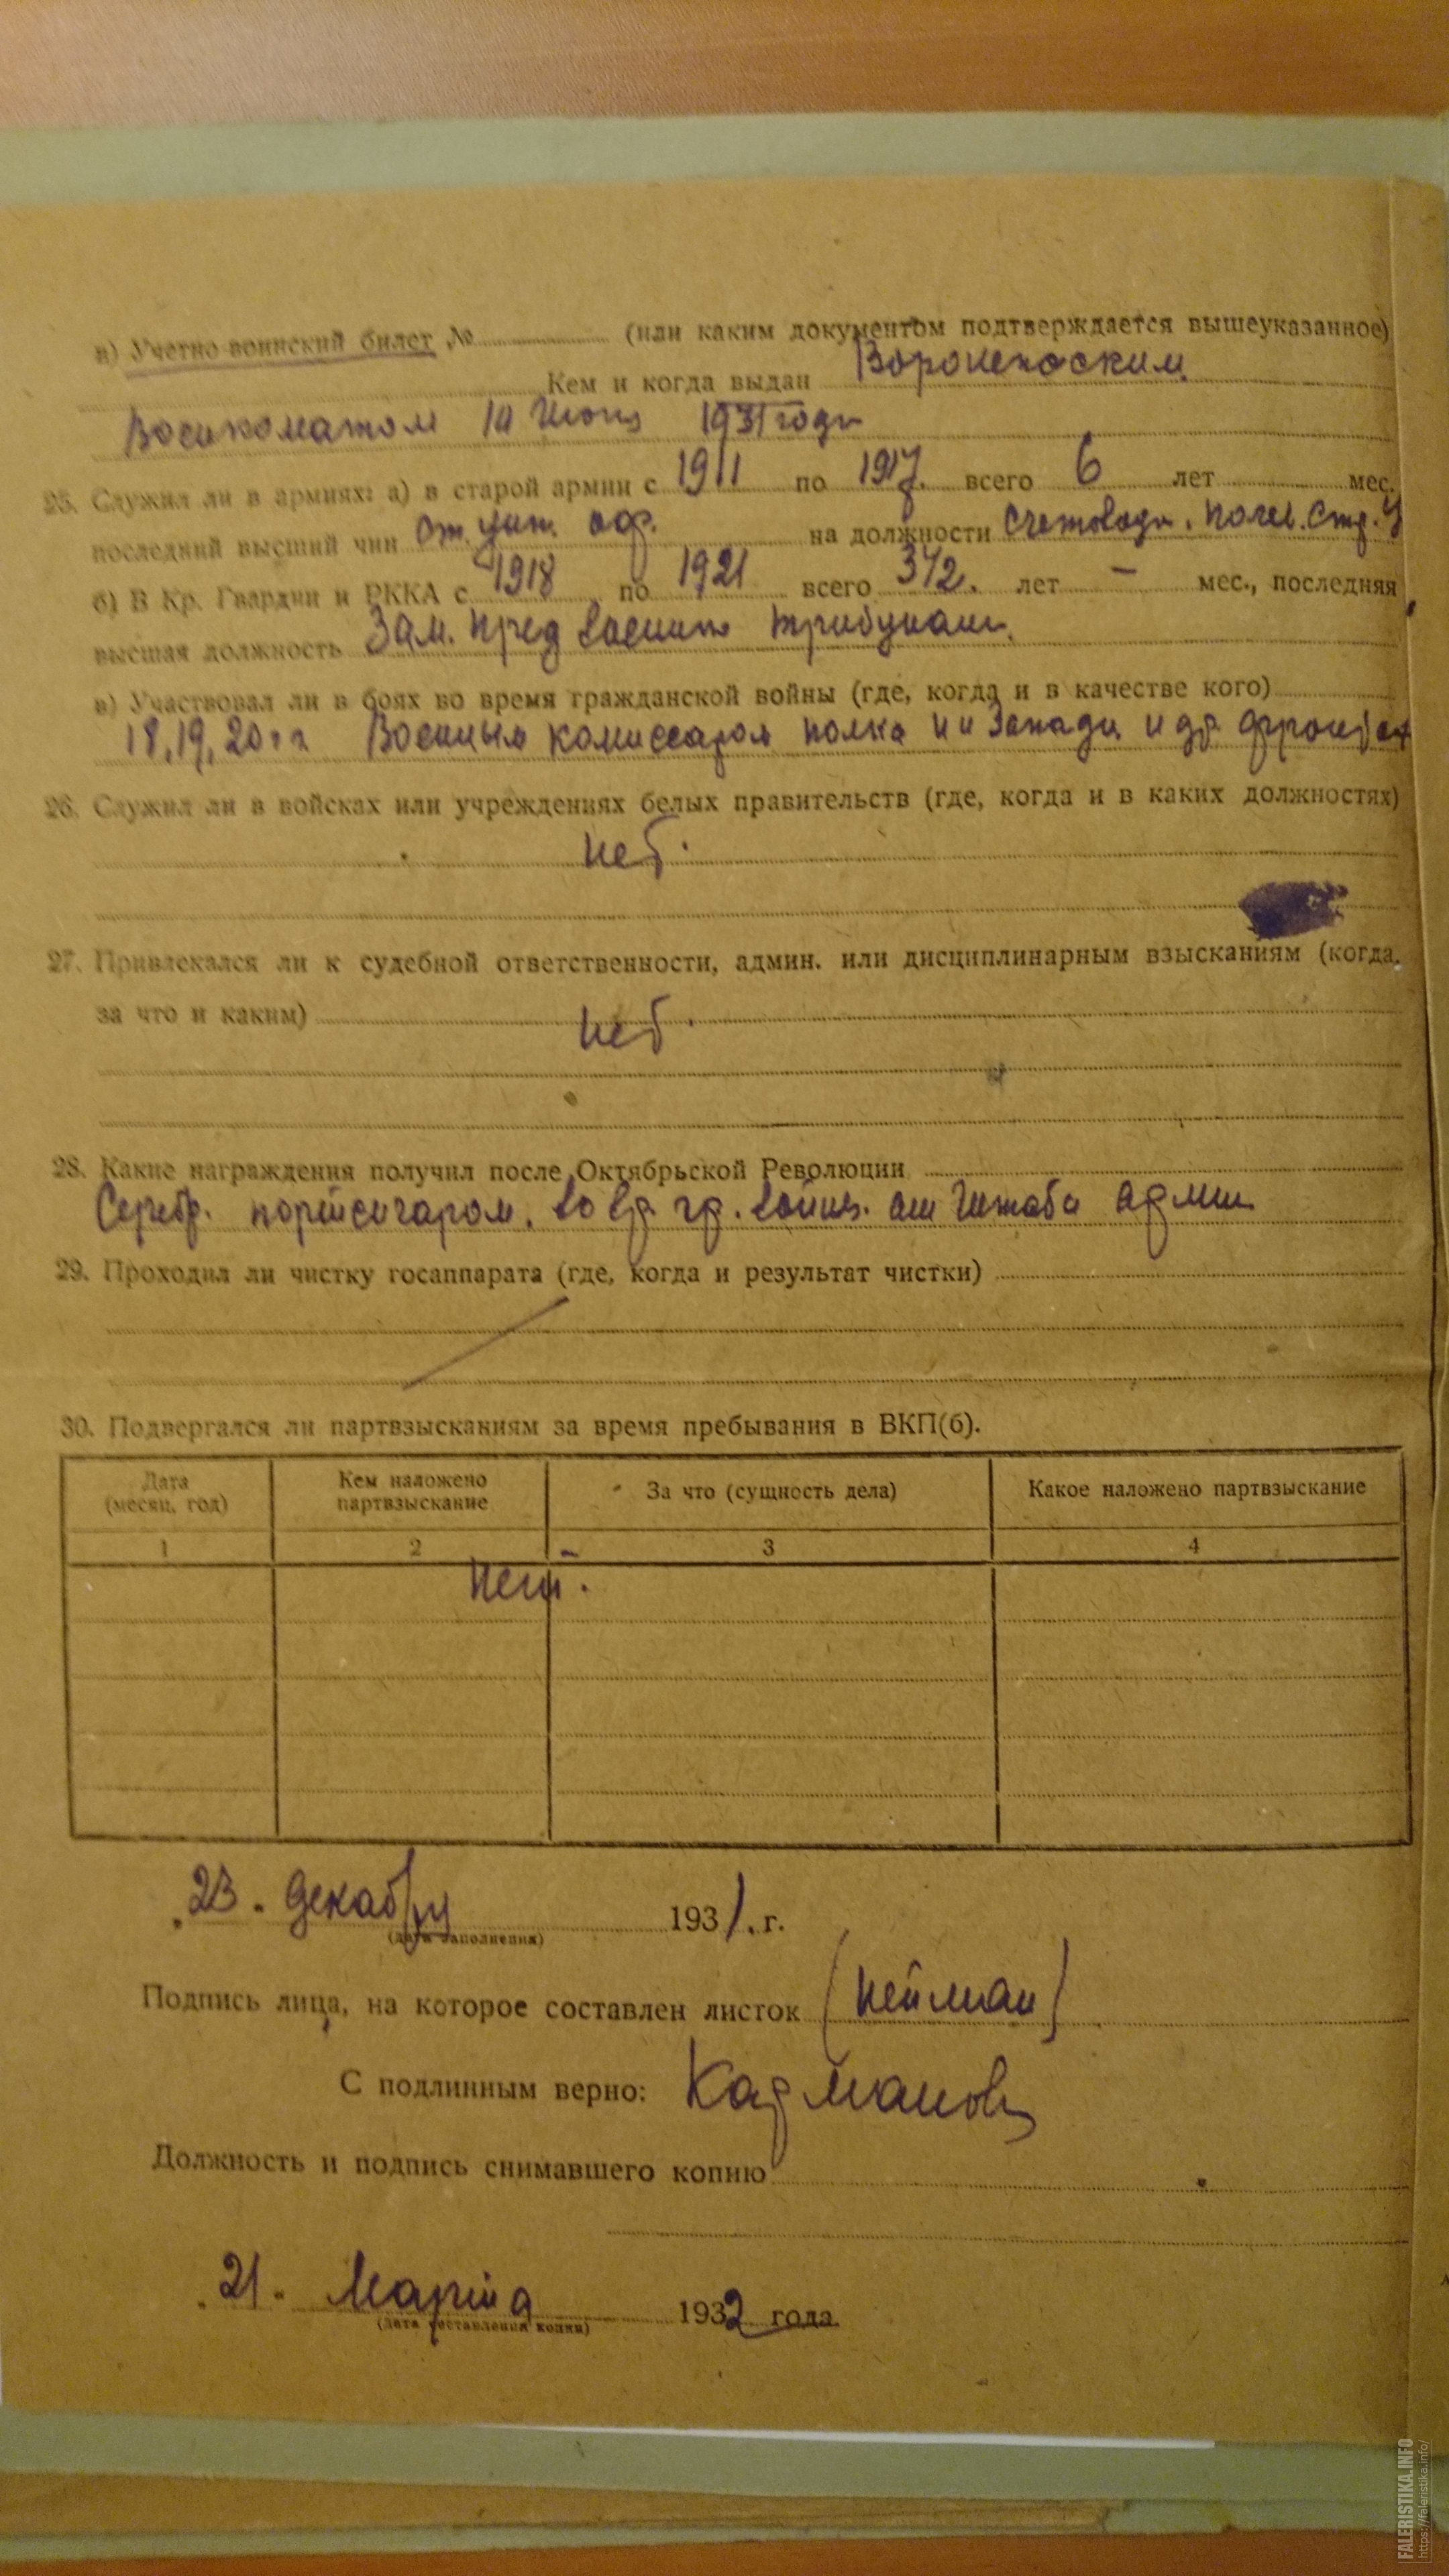 в) Учетно-воинский билет № (или каким документом подтверждается вышеуказанное)
Кем и когда выдан Воронежским
Военкоматом 10 Июня 1931 года
25. Служил ли в армиях: а) в старой армии с 1911 по 1917. всего 6 лет мес.
последний высший чин ст. унт. оф. на должности счетовода.
б) В Кр. Гвардии и РККА с 1918 по 1921 всего 3 1/2. лет — мес., последняя
высшая должность Зам. пред военн трибунал.
в) Участвовал ли в боях во время гражданской войны (где, когда и в качестве кого)
18, 19, 20 гг Военным комиссаром полка на Западн и др фронтах
26. Служил ли в войсках или учреждениях белых правительств (где, когда и в каких должностях)
нет.
27. Привлекался ли к судебной ответственности, админ. или дисциплинарным взысканиям (когда,
за что и каким)
нет.
28. Какие награждения получил после Октябрьской Революции
Серебр. портсигаром, во вр. гр. войны. от Штаба армии
29. Проходил ли чистку госаппарата (где, когда и результат чистки)
30. Подвергался ли партвзысканиям за время пребывания в ВКП(б).
Дата (месяц, год) Кем наложено партвзыскание За что (сущность дела) Какое наложено партвзыскание
1 2 3 4
Нет.
23. декабря 1931. г.
(дата заполнения)
Подпись лица, на которое составлен листок (Нейман)
С подлинным верно:
Должность и подпись снимавшего копию
21. Марта 1932 года
(дата составления копии)
FALERISTIKA.INFO
https://faleristika.info/